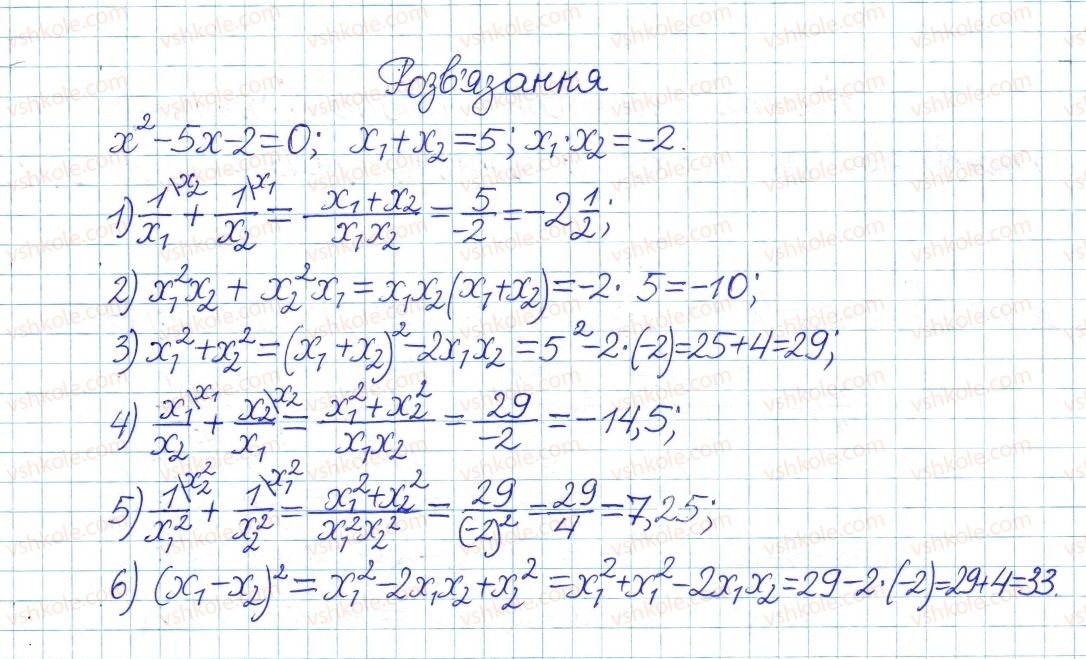 Розв'язання
x² - 5x - 2 = 0; x₁ + x₂ = 5; x₁·x₂ = -2.
1) 1\x₂/x₁ + 1\x₁/x₂ = (x₁ + x₂)/(x₁x₂) = 5/-2 = -2 1/2;
2) x₁²x₂ + x₂²x₁ = x₁x₂(x₁ + x₂) = -2 · 5 = -10;
3) x₁² + x₂² = (x₁ + x₂)² - 2x₁x₂ = 5² - 2·(-2) = 25 + 4 = 29;
4) x₁\x₁/x₂ + x₂\x₂/x₁ = (x₁² + x₂²)/(x₁x₂) = 29/-2 = -14,5;
5) 1\x₂²/x₁² + 1\x₁²/x₂² = (x₁² + x₂²)/(x₁²x₂²) = 29/(-2)² = 29/4 = 7,25;
6) (x₁ - x₂)² = x₁² - 2x₁x₂ + x₂² = x₁² + x₁² - 2x₁x₂ = 29 - 2·(-2) = 29 + 4 = 33.
vshkole.com